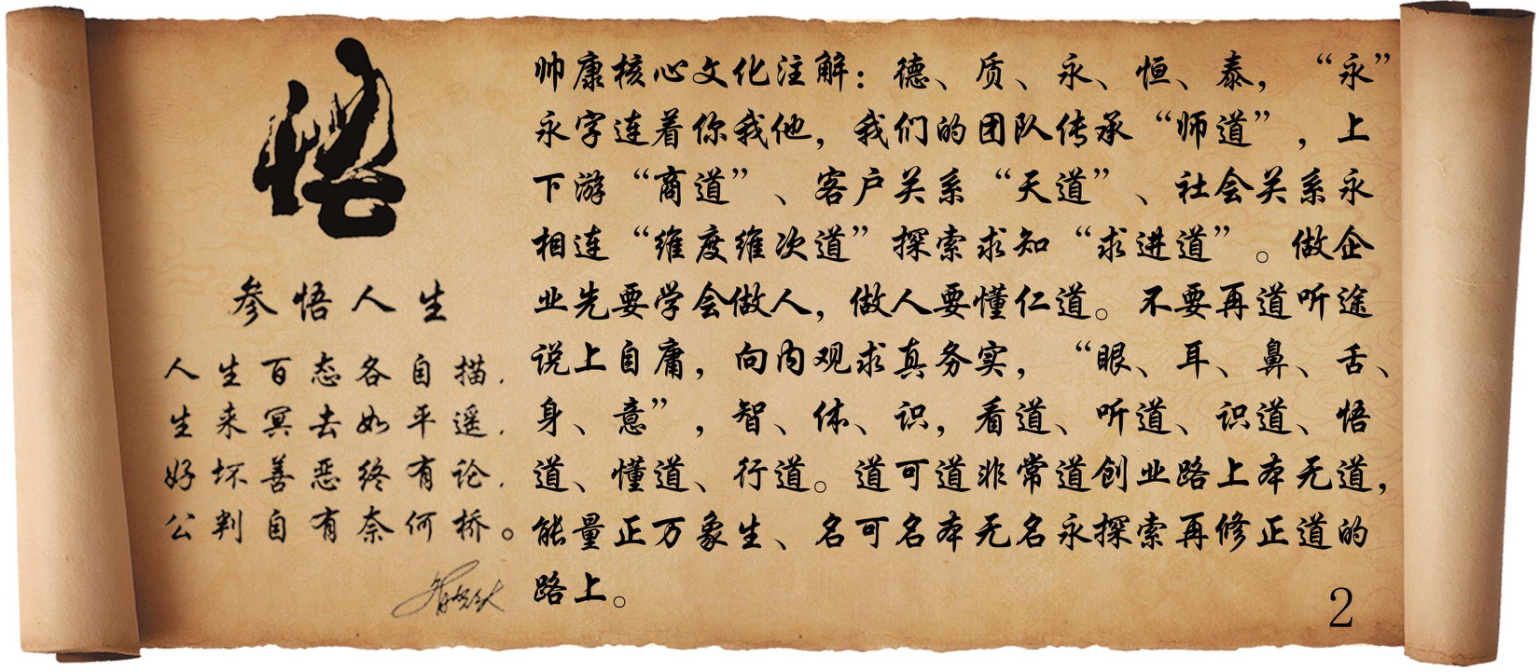 悟
参悟人生
人生百态各自描.
生来冥去如平遥.
好坏善恶终有论.
公判自有奈何桥。
帅康核心文化注解：德、质、永、恒、泰，“永”
永字连着你我他，我们的团队传承“师道”，上
下游“商道”、客户关系“天道”、社会关系永
相连“维度维次道”探索求知“求进道”。做企
业先要学会做人，做人要懂仁道。不要再道听途
说上自庸，向内观求真务实，“眼、耳、鼻、舌、
身、意”，智、体、识，看道、听道、识道、悟
道、懂道、行道。道可道非常道创业路上本无道，
能量正万象生、名可名本无名永探索再修正道的
路上。
2